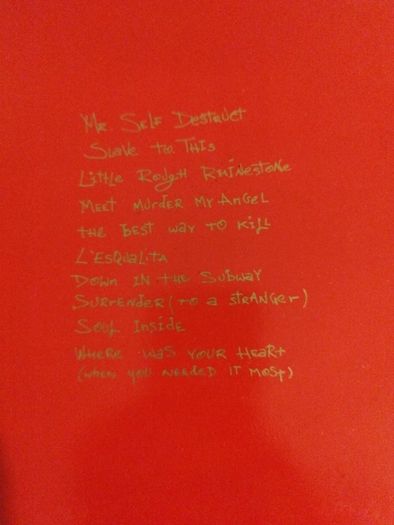 Mr. Self Destruct
Slave to This
Little Rough Rhinestone
Meet Murder My Angel
The Best Way to Kill
L'Esqualita
Down in the Subway
Surrender (to a stranger)
Soul Inside
Where was your Heart
(when you needed it most)